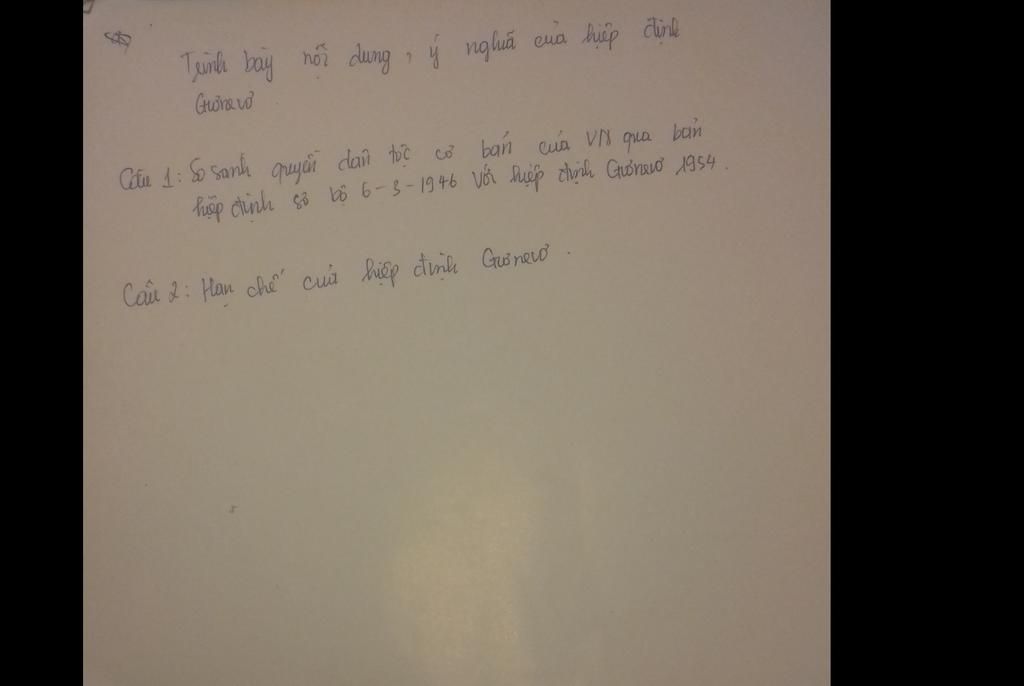 Trình bày nội dung, ý nghĩa của hiệp định
Giơnevơ
Câu 1: So sánh quyền dân tộc cơ bản của VN qua bản
hiệp định sơ bộ 6-3-1946 với hiệp định Giơnevơ 1954.
Câu 2: Hạn chế của hiệp định Giơnevơ.